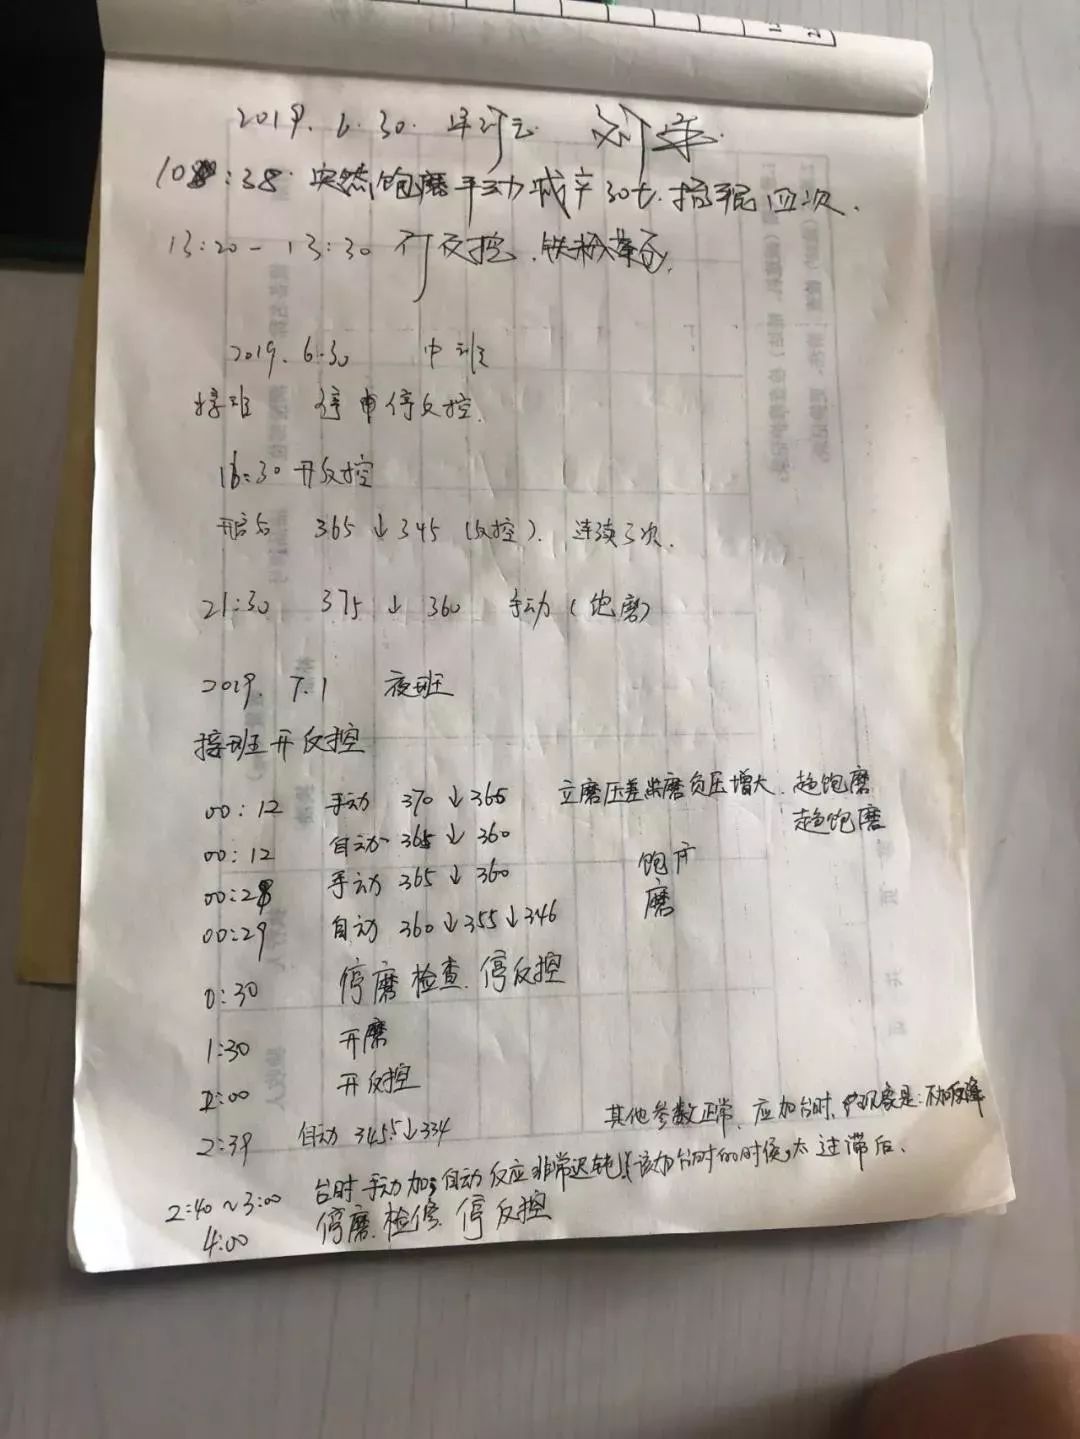 2019.6.30. 早班 
10:38. 突然饱磨手动减产30t. 抬辊四次.
13:20-13:30 开反控. 铁粉
2019.6.30 中班
接班 停 停反控.
16:30 开反控
开启后 365↓345 (反控). 连续3次.
21:30 375↓360 手动(饱磨)
2019.7.1 夜班
接班开反控
00:12 手动 370↓365 立磨压差出磨负压增大. 趋饱磨
00:12 自动 365↓360 趋饱磨
00:28 手动 365↓360 饱
00:29 自动 360↓355↓346 磨
0:30 停磨检查. 停反控
1:30 开磨
2:00 开反控
2:39 自动 345.5↓334 其他参数正常, 应加台时, 现象是:不加反降
2:40~3:00 台时手动加, 自动反应非常迟钝, 该加台时的时候, 太过滞后.
4:00 停磨.检修. 停反控